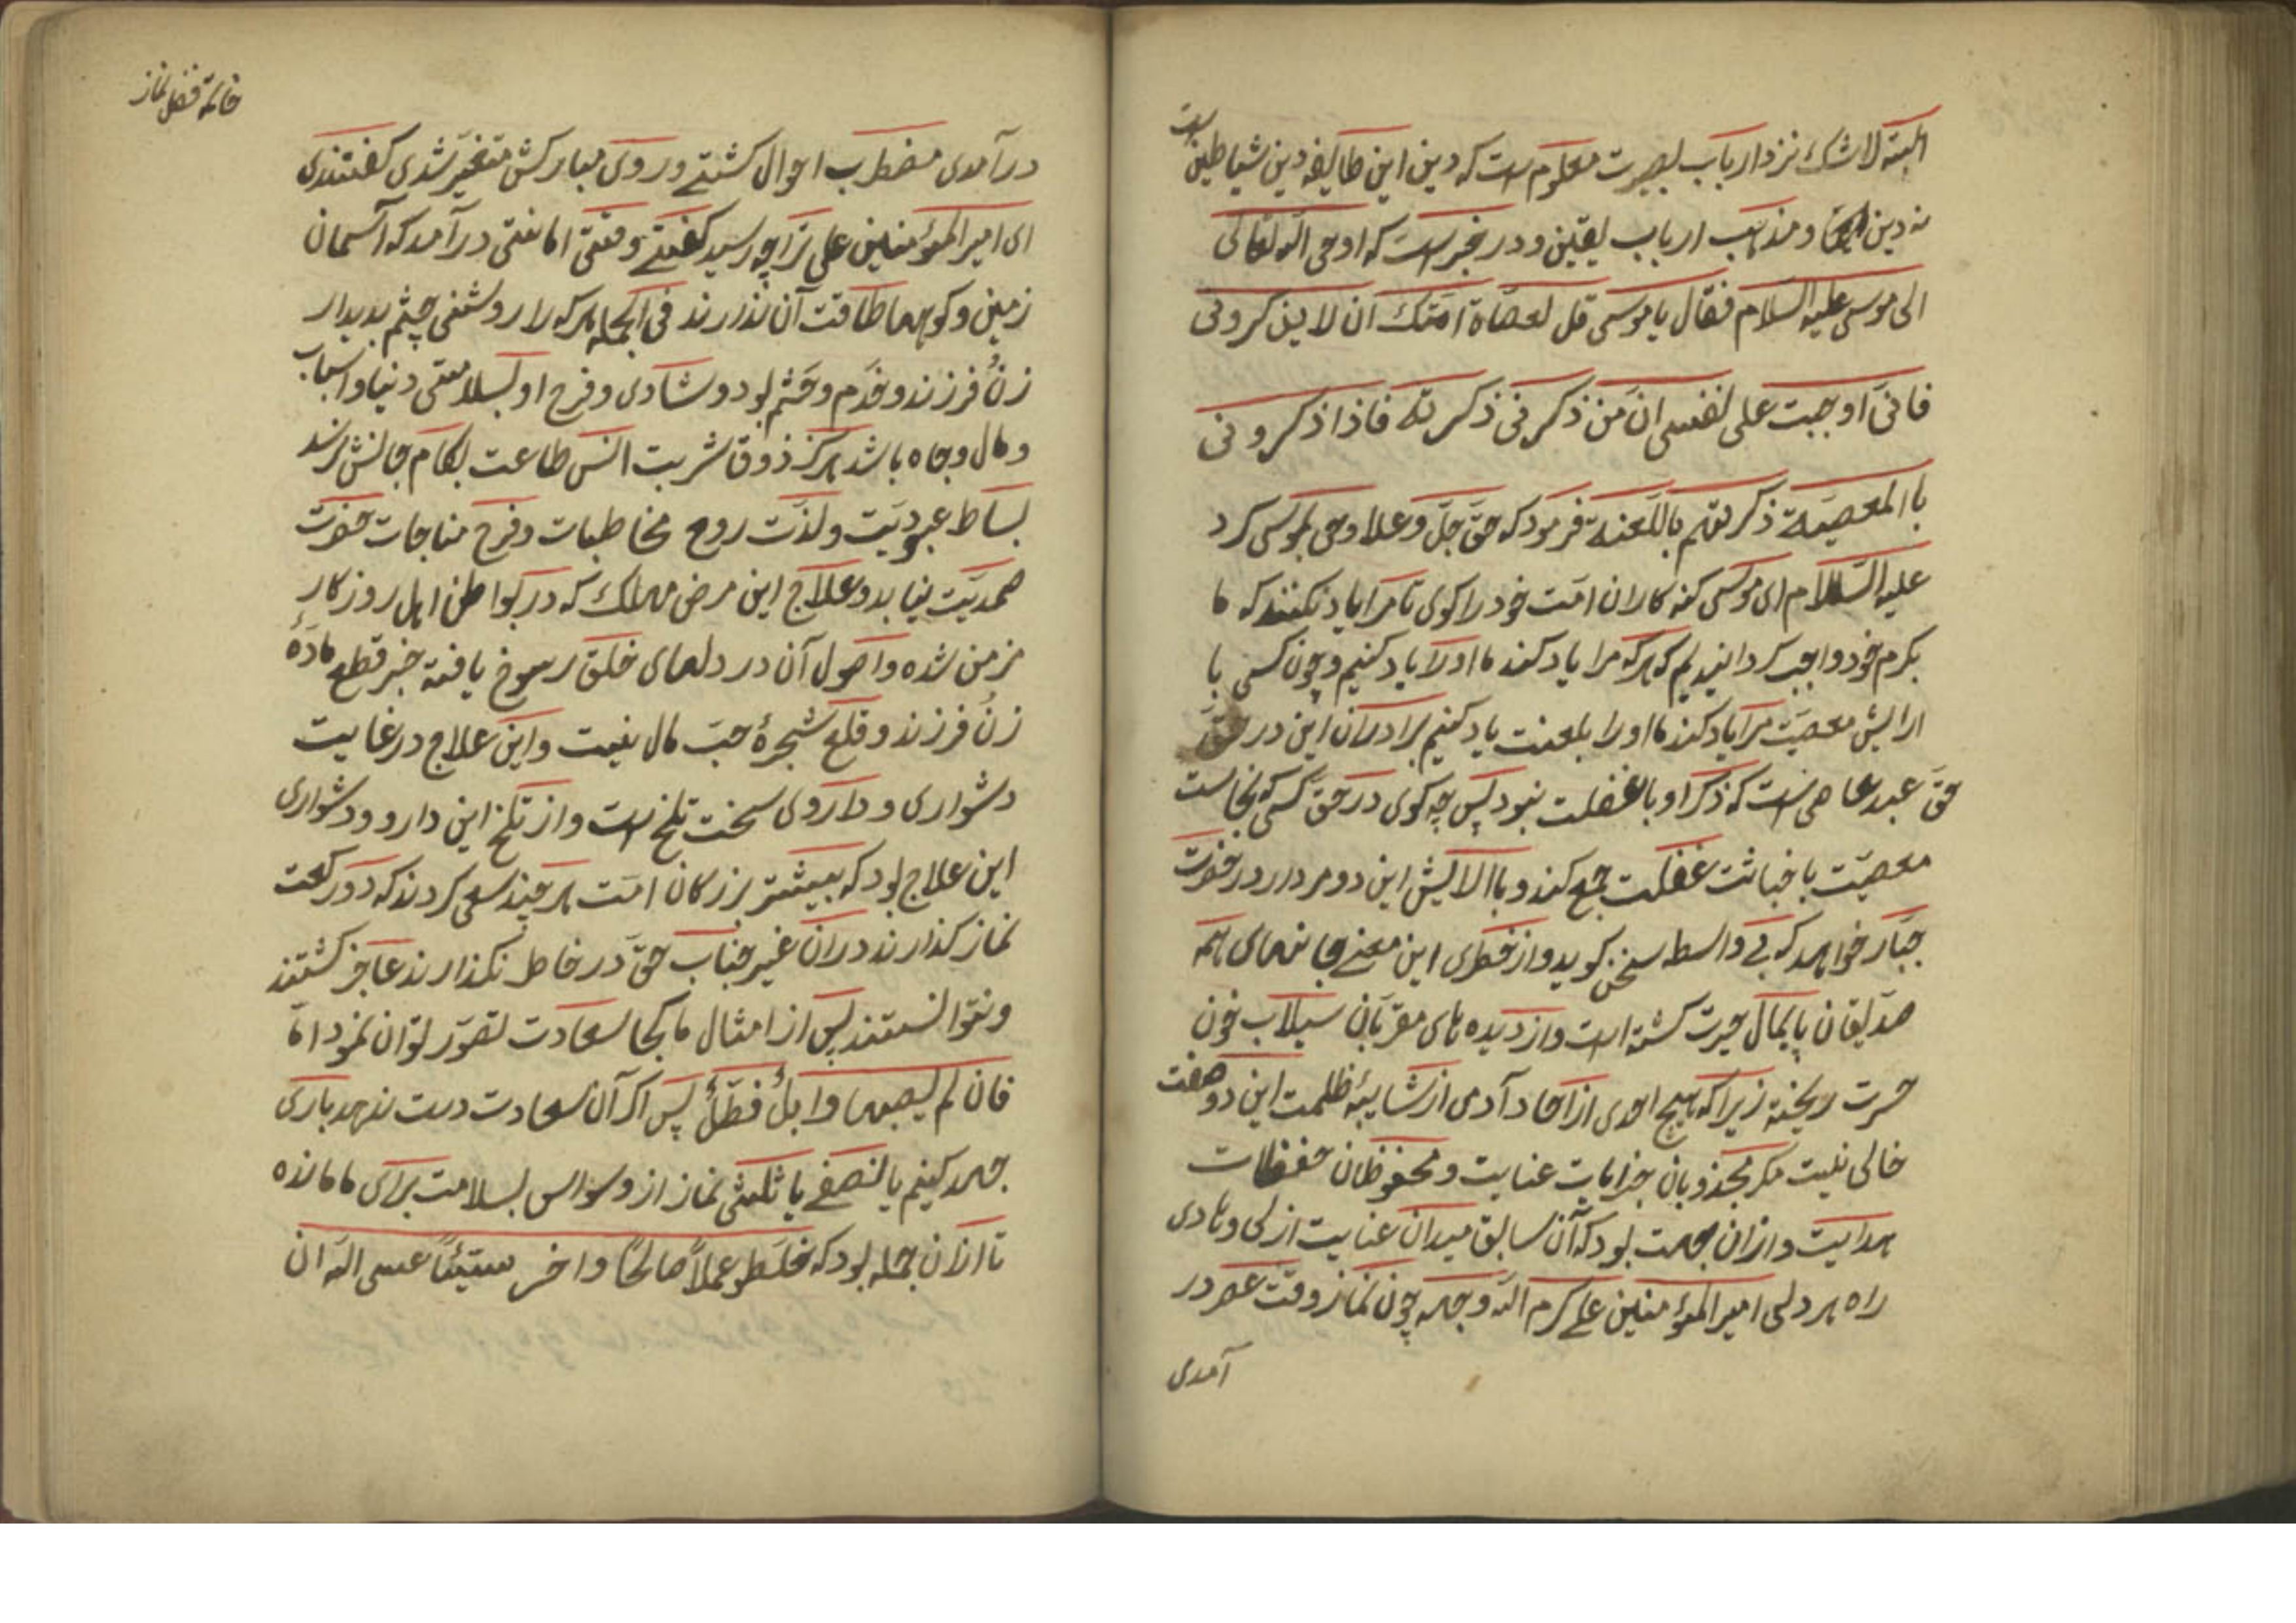 البته لاشك نزد ارباب بصیرت معلوم است که دین این طایفه دین شیاطین است
نه دین و مذهب ارباب یقین و در خبر است که اوحی الله تعالی
الی موسی علیه السلام فقال یا موسی قل لعصاة امتك ان لا یذکرونی
فانی اوجبت علی نفسی ان من ذکرنی ذکرته فاذا ذکرونی
باالمعصیة ذکرتهم باللعنة فرمود که حق جل و علا وحی بموسی کرد
علیه السلام ای موسی کنه کاران امت خود را کوی تا مرا یاد نکنند که ما
بکرم خود واجب کردانیدیم که هرکه مرا یاد کند ما اورا یاد کنیم و چون کسی با
ارایش معصیت مرا یاد کند ما اورا بلعنت یاد کنیم برادران این در حق
حق عبد عاصی است که ذکر او با غفلت نبود پس چه کوی در حق کسی که نجاست
معصیت با خباثت غفلت جمع کند و باالایش این دو مردار در حضرت
جبار خواهد که بی واسطه سخن کوید و از خطری این معنی جانهای همه
صدیقان پایمال حیرت کشته است و از دیده های مقربان سیلاب خون
حسرت ریخته زیرا که هیچ احدی از احاد آدمی از شایبهٔ ظلمت این دو صفت
خالی نیست مکر مجذوبان جذبات عنایت و محفوظان حفظات
هدایت و ازان جهت بود که آن سابق میدان عنایت ازلی و هادی
راه هر دلی امیر المؤمنین علی کرم الله وجهه چون نماز وقت عصر در
آمدی
خاتمه فضل نماز
درآمدی مضطرب احوال کشتی و روی مبارکش متغیر شدی کفتندی
ای امیر المؤمنین علی ترا چه رسید کفتی وقتی امانتی درآمد که آسمان
زمین و کوهها طاقت آن ندارند فی الجمله هرکه را روشنی چشم بدیدار
زن فرزند و خدم و حشم بود و شادی و فرح او بسلامتی دنیا و اسباب
و مال و جاه باشد هرکز ذوق شربت انس طاعت بکام جانش نرسد
بساط عبودیت و لذت روح مخاطبات و فرح مناجات حضرت
صمدیت نیابد و علاج این مرض مهلك که در بواطن اهل روزکار
مزمن شده و اصول آن در دلهای خلق رسوخ یافته جز قطع مادهٔ
زن فرزند و قلع شجرهٔ حب مال نیست و این علاج در غایت
دشواری و داروی سخت تلخ است و از تلخ این دارو و دشواری
این علاج بود که بیشتر بزرکان امت هر چند سعی کردند که دو رکعت
نماز کذارند دران غیر جناب حق در خاطر نکذارند عاجز کشتند
و نتوانستند پس از امثال ما کجا سعادت تصور توان نمود اما
فان لم یصبها وابل فطل پس اکر آن سعادت دست ندهد باری
جهد کنیم یا نصفی یا ثلثی نماز از وسواس بسلامت برای ما مانده
تا ازان جمله بود که خلطو عملاً صالحاً واخر سیئاً عسی الله ان